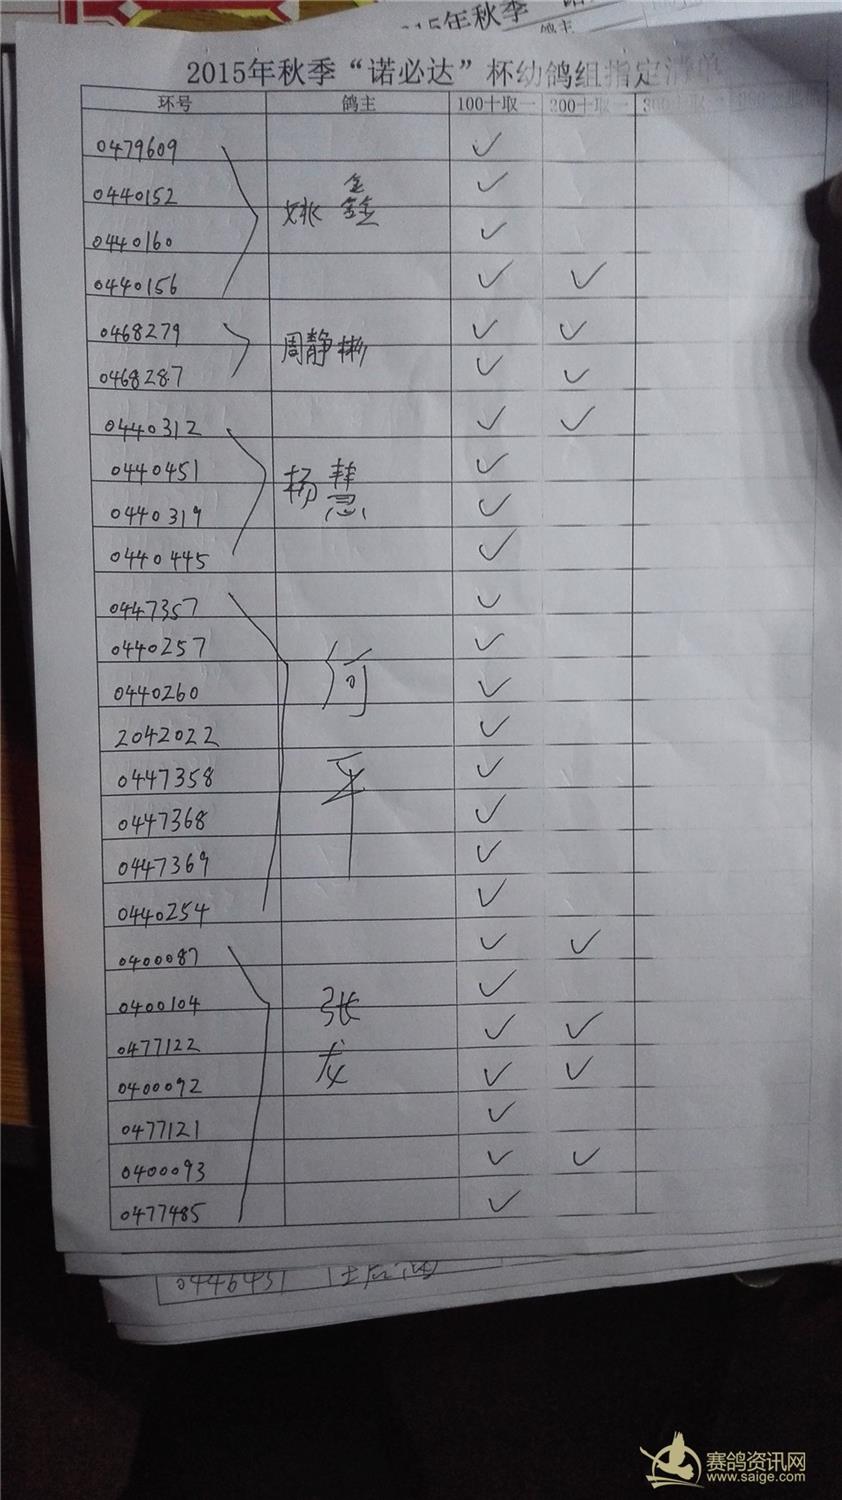 015年秋季
鸽主
2015年秋季“诺必达”杯幼鸽组指定清单
环号 鸽主 100十取一 200十取一 300十取一
0479609 ✓
0440152 姚鑫 ✓
0440160 ✓
0440156 ✓ ✓
0468279 周静彬 ✓ ✓
0468287 ✓ ✓
0440312 ✓ ✓
0440451 杨慧 ✓
0440319 ✓
0440445 ✓
0447357 ✓
0440257 何平 ✓
0440260 ✓
2042022 ✓
0447358 ✓
0447368 ✓
0447369 ✓
0440254 ✓
0400087 ✓ ✓
0400104 张龙 ✓
0477122 ✓ ✓
0400092 ✓ ✓
0477121 ✓
0400093 ✓ ✓
0477485 ✓
0446451
赛鸽资讯网
www.saige.com